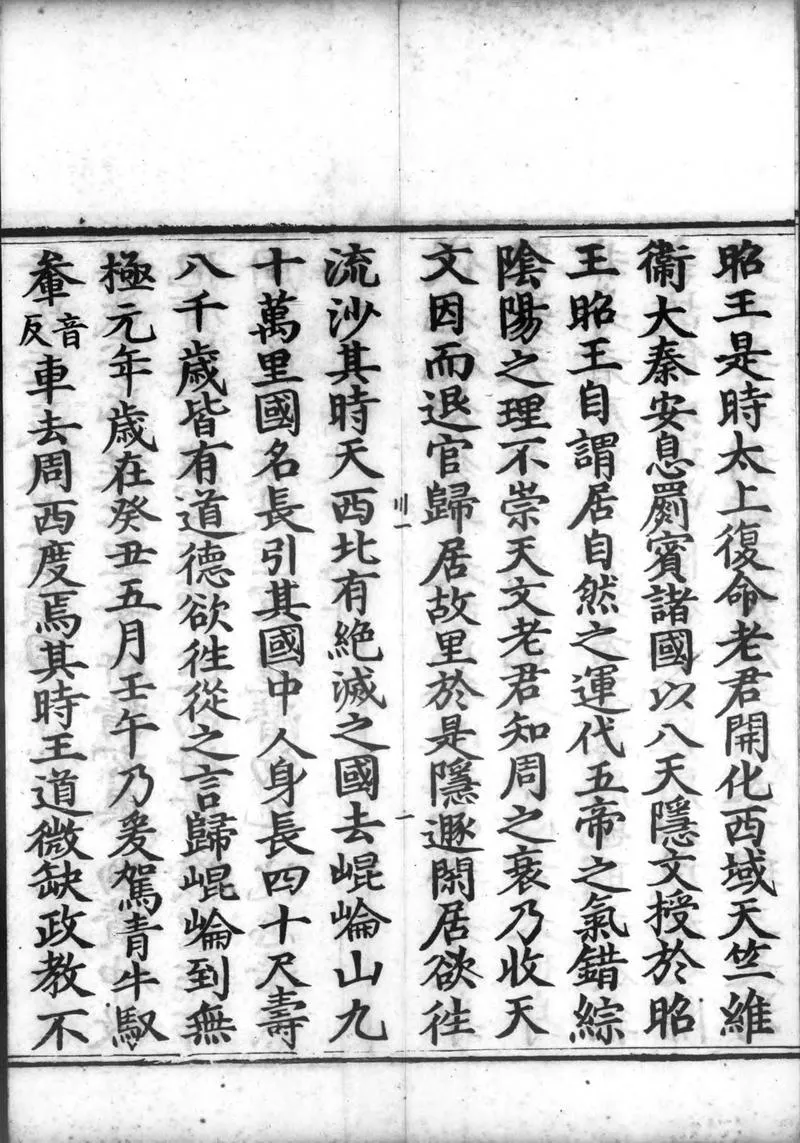 昭王是時太上復命老君開化西域天竺維
衞大秦安息罽賓諸國以八天隱文授於昭
王昭王自謂居自然之運代五帝之氣錯綜
陰陽之理不崇天文老君知周之衰乃收天
文因而退官歸居故里於是隱遯閑居欲往
川一
一
流沙其時天西北有絶滅之國去崐崘山九
十萬里國名長引其國中人身長四十尺壽
八千歲皆有道德欲往從之言歸崐崘到無
極元年歲在癸丑五月壬午乃爰駕青牛馭
軬音反車去周西度焉其時王道微缺政教不